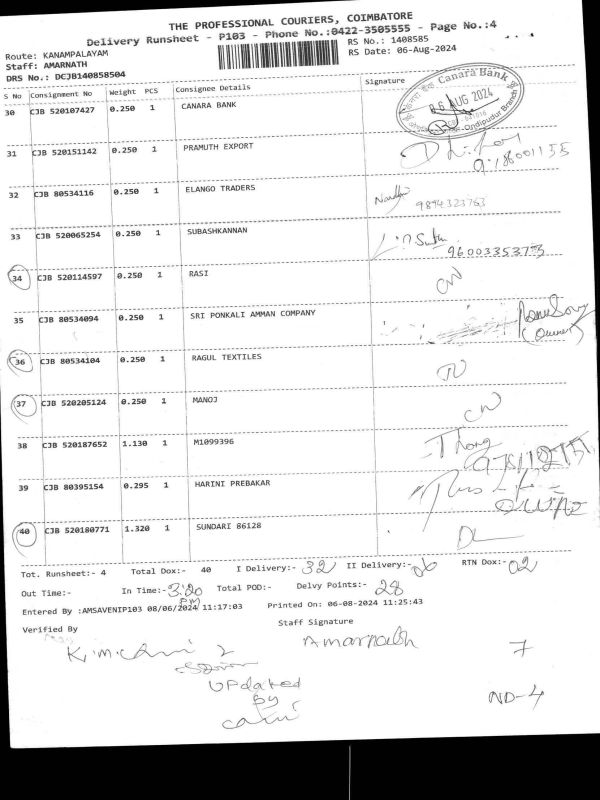 THE PROFESSIONAL COURIERS, COIMBATORE
Delivery Runsheet - P103 - Phone No.:0422-3505555 - Page No.:4
Route: KANAMPALAYAM RS No.: 1408585
Staff: AMARNATH RS Date: 06-Aug-2024
DRS No.: DCJB140858504
S No Consignment No Weight PCS Consignee Details Signature
30 CJB 520107427 0.250 1 CANARA BANK
Canara Bank
06 AUG 2024
Ondipudur Branch
31 CJB 520151142 0.250 1 PRAMUTH EXPORT
32 CJB 80534116 0.250 1 ELANGO TRADERS
9894323763
33 CJB 520065254 0.250 1 SUBASHKANNAN
9600335373
34 CJB 520114597 0.250 1 RASI
CN
35 CJB 80534094 0.250 1 SRI PONKALI AMMAN COMPANY
(Owner)
36 CJB 80534104 0.250 1 RAGUL TEXTILES
37 CJB 520205124 0.250 1 MANOJ
CN
38 CJB 520187652 1.130 1 M1099396
39 CJB 80395154 0.295 1 HARINI PREBAKAR
40 CJB 520180771 1.320 1 SUNDARI 86128
Tot. Runsheet:- 4 Total Dox:- 40 I Delivery:- 32 II Delivery:- 06 RTN Dox:- 02
Out Time:- In Time:- 3:20 PM Total POD:- Delvy Points:- 28
Entered By :AMSAVENIP103 08/06/2024 11:17:03 Printed On: 06-08-2024 11:25:43
Verified By Staff Signature
Amarnath
7
Updated
By
ND-4